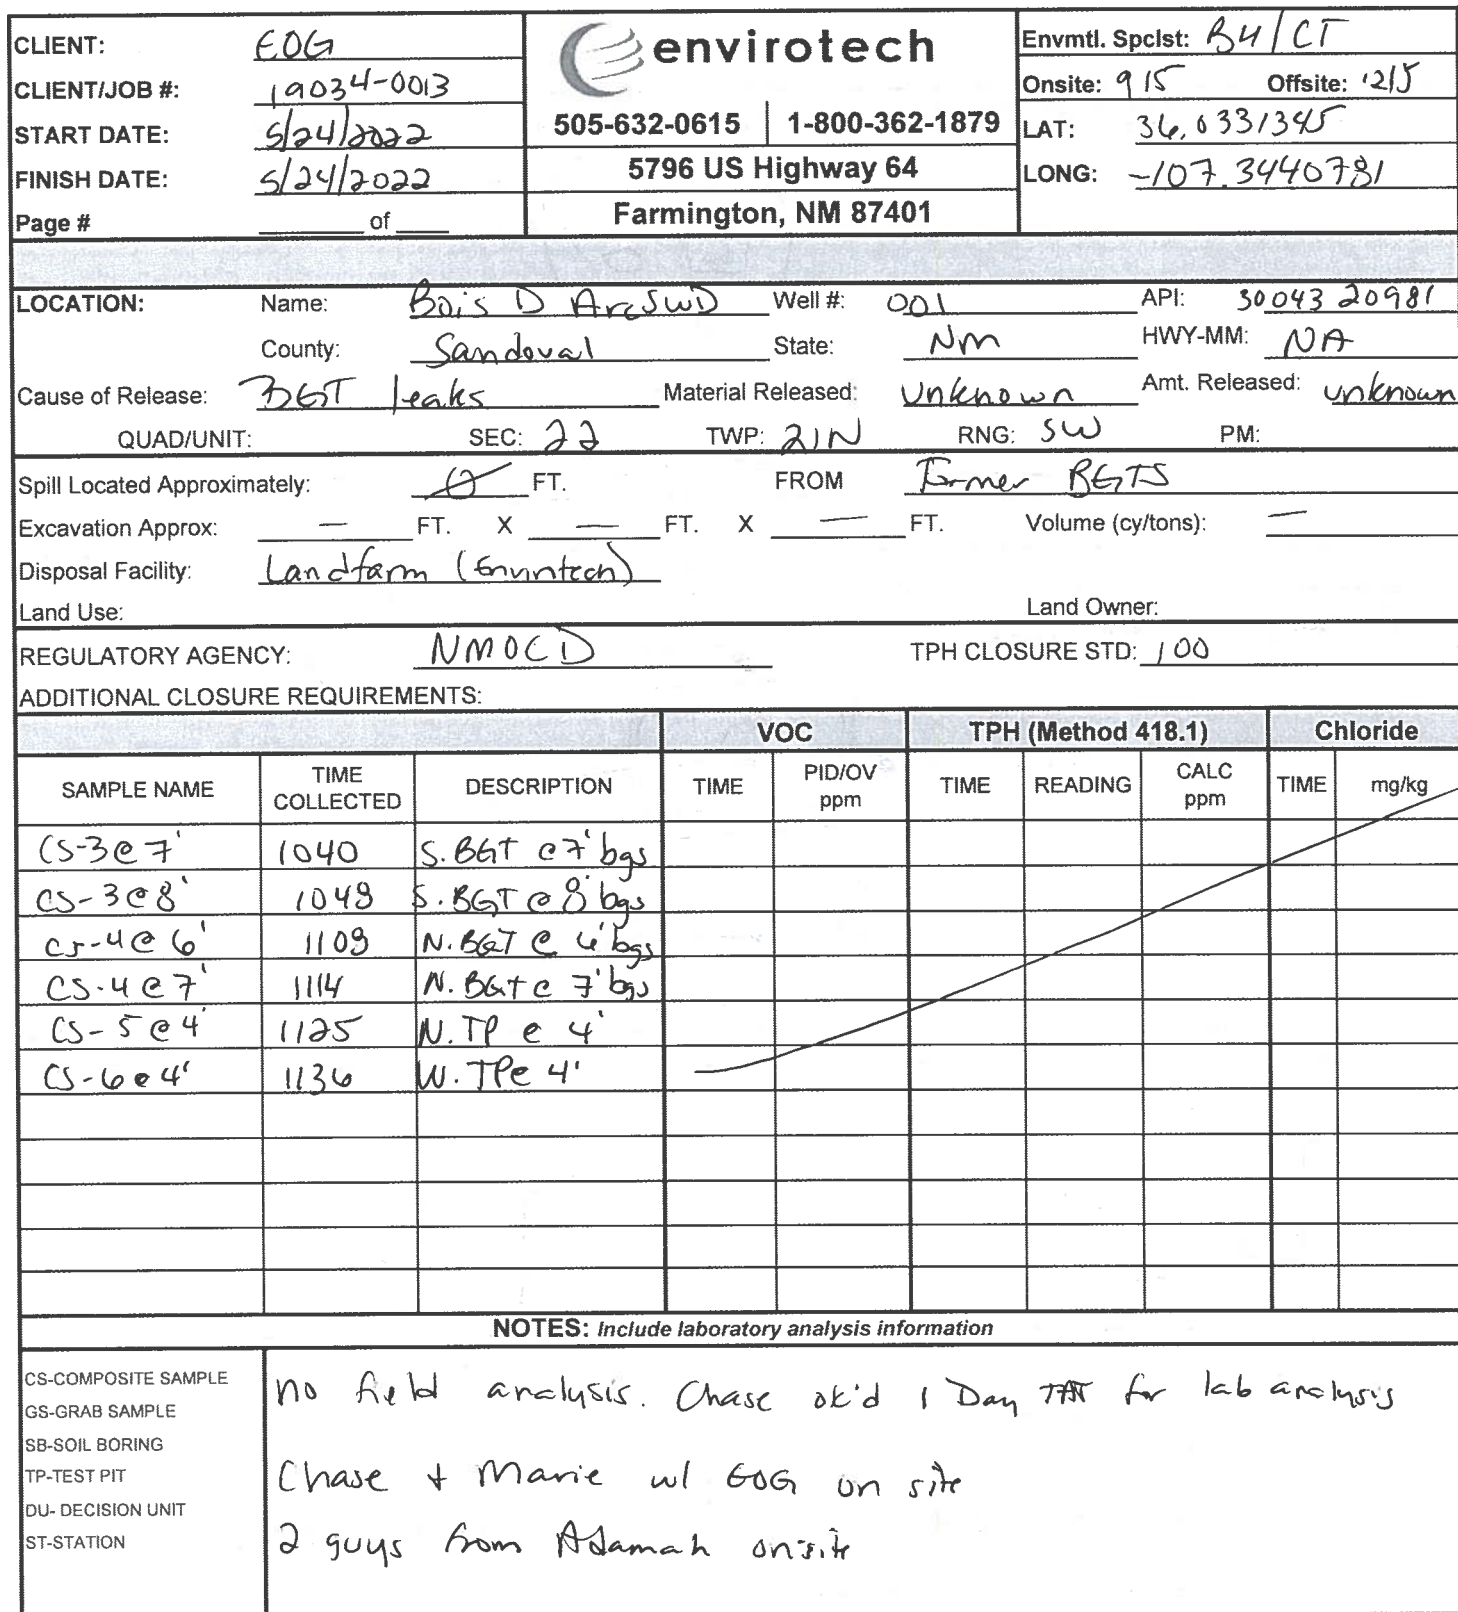 CLIENT: EOG
CLIENT/JOB #: 19034-0013
START DATE: 5/24/2022
FINISH DATE: 5/24/2022
Page # ____ of ____
envirotech
505-632-0615 | 1-800-362-1879
5796 US Highway 64
Farmington, NM 87401
Envmtl. Spclst: BH/CT
Onsite: 915 Offsite: 1215
LAT: 36.0331345
LONG: -107.3440781
LOCATION: Name: Bois D Arc SWD Well #: 001 API: 30043 20981
County: Sandoval State: NM HWY-MM: NA
Cause of Release: BGT leaks Material Released: unknown Amt. Released: unknown
QUAD/UNIT: SEC: 22 TWP: 21N RNG: 5W PM:
Spill Located Approximately: 0 FT. FROM Former BGTS
Excavation Approx: — FT. X — FT. X — FT. Volume (cy/tons): —
Disposal Facility: Landfarm (Envirotech)
Land Use: Land Owner:
REGULATORY AGENCY: NMOCD TPH CLOSURE STD: 100
ADDITIONAL CLOSURE REQUIREMENTS:
VOC TPH (Method 418.1) Chloride
SAMPLE NAME TIME COLLECTED DESCRIPTION TIME PID/OV ppm TIME READING CALC ppm TIME mg/kg
CS-3@7' 1040 S. BGT @ 7' bgs
CS-3@8' 1048 S. BGT @ 8' bgs
CS-4@6' 1108 N. BGT @ 6' bgs
CS-4@7' 1114 N. BGT @ 7' bgs
CS-5@4' 1125 N. TP @ 4'
CS-6@4' 1136 W. TP@ 4'
NOTES: Include laboratory analysis information
CS-COMPOSITE SAMPLE
GS-GRAB SAMPLE
SB-SOIL BORING
TP-TEST PIT
DU- DECISION UNIT
ST-STATION
no field analysis. Chase ok'd 1 Day TAT for lab analysis
Chase + Marie w/ EOG on site
2 guys from Adamah onsite